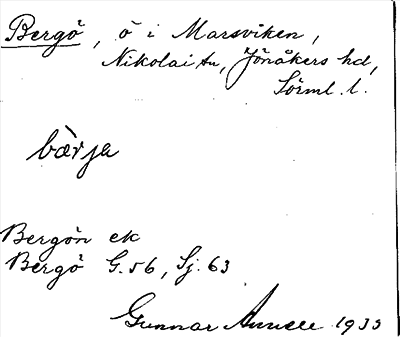 Bergö, ö i Marsviken,
Nikolai sn, Jönåkers hd,
Sörml. l.
bærja
Bergön ek
Bergö G. 56, Sj. 63
Gunnar 1933